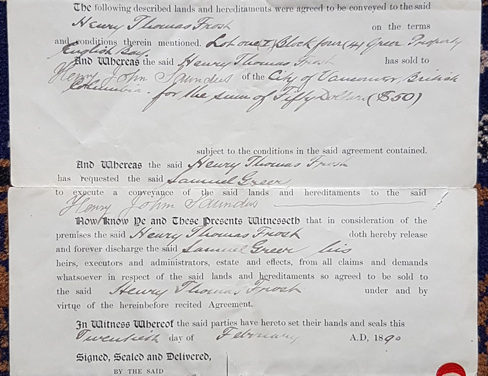 The following described lands and hereditaments were agreed to be conveyed to the said
Henry Thomas Frost on the terms
and conditions therein mentioned. Lot one (1) Block four (4) Greer Property
English Bay
And Whereas the said Henry Thomas Frost has sold to
Henry John Saunders of the City of Vancouver, British
Columbia. for the sum of Fifty Dollars ($50)
subject to the conditions in the said agreement contained.
And Whereas the said Henry Thomas Frost
has requested the said Samuel Greer
to execute a conveyance of the said lands and hereditaments to the said
Henry John Saunders
Now Know Ye and These Presents Witnesseth that in consideration of the
premises the said Henry Thomas Frost doth hereby release
and forever discharge the said Samuel Greer his
heirs, executors and administrators, estate and effects, from all claims and demands
whatsoever in respect of the said lands and hereditaments so agreed to be sold to
the said Henry Thomas Frost under and by
virtue of the hereinbefore recited Agreement.
In Witness Whereof the said parties have hereto set their hands and seals this
Twentieth day of February A.D, 1890
Signed, Sealed and Delivered,
BY THE SAID